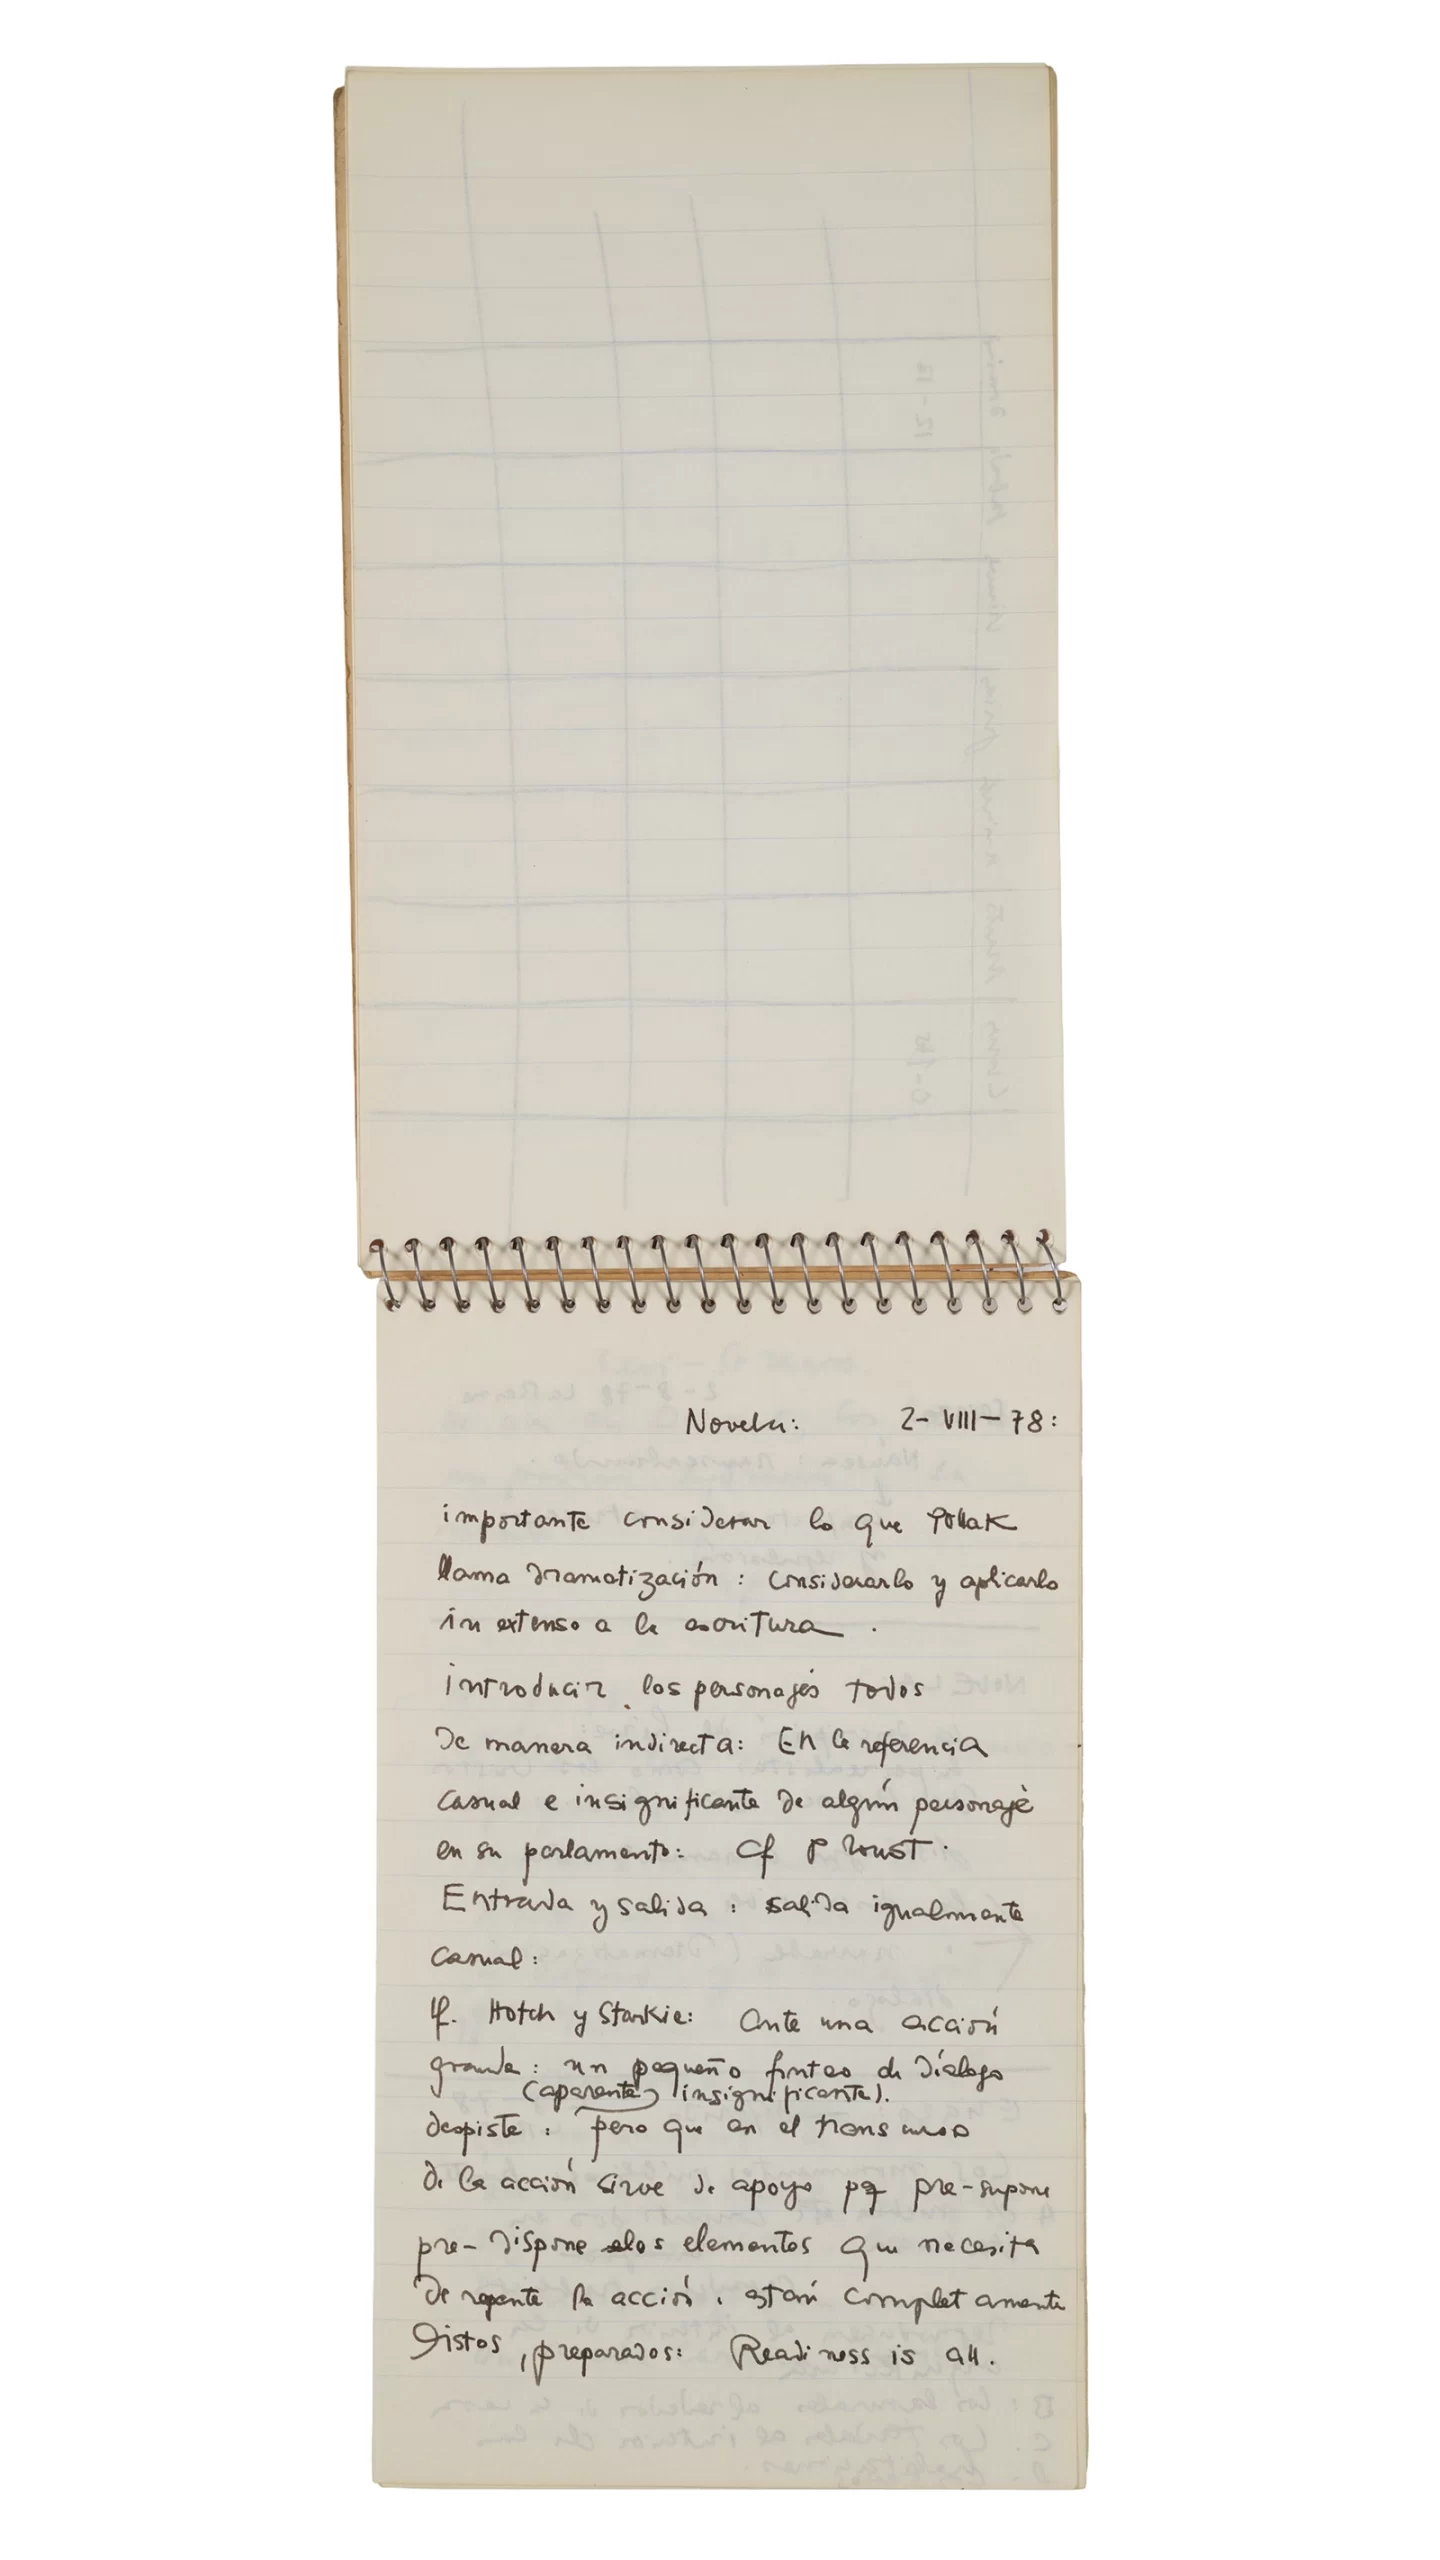 Novela: 2-VIII-78:
importante considerar lo que Pollak
llama dramatización: considerarlo y aplicarlo
in extenso a la escritura.
introducir los personajes todos
de manera indirecta: En la referencia
casual e insignificante de algún personaje
en su parlamento: Cf Proust.
Entrada y salida: salida igualmente
casual:
Cf. Hotch y Starkie: Ante una acción
grande: un pequeño finteo de diálogo
(aparente) insignificante).
despiste: pero que en el transcurso
de la acción sirve de apoyo pq pre-supone
pre-dispone los elementos que necesita
de repente la acción. están completamente
listos, preparados: Readiness is all.